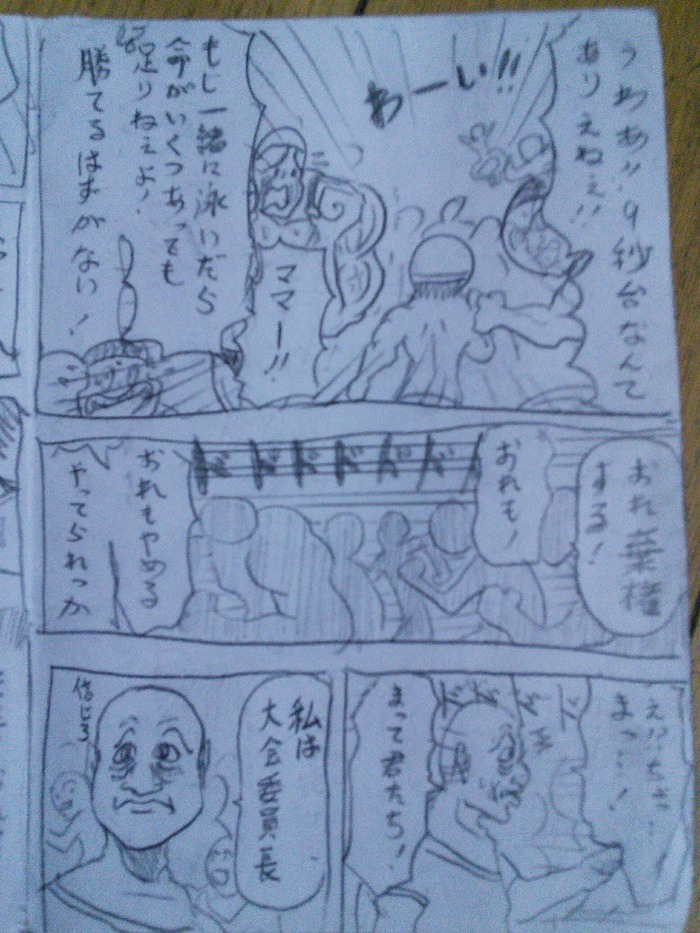 うわあ!!9秒台なんて
ありえねぇ!!
わーい!!
ママー!!
もし一緒に泳いだら
命がいくつあっても
足りねぇよ!
勝てるはずがない!
おれ棄権
する!
おれも!
ドドドドドド
おれもやめる
やってられっか
え!?ちょ…
まっ…!
ドドドド
まって君たち!
私は
大会委員長
信じろ